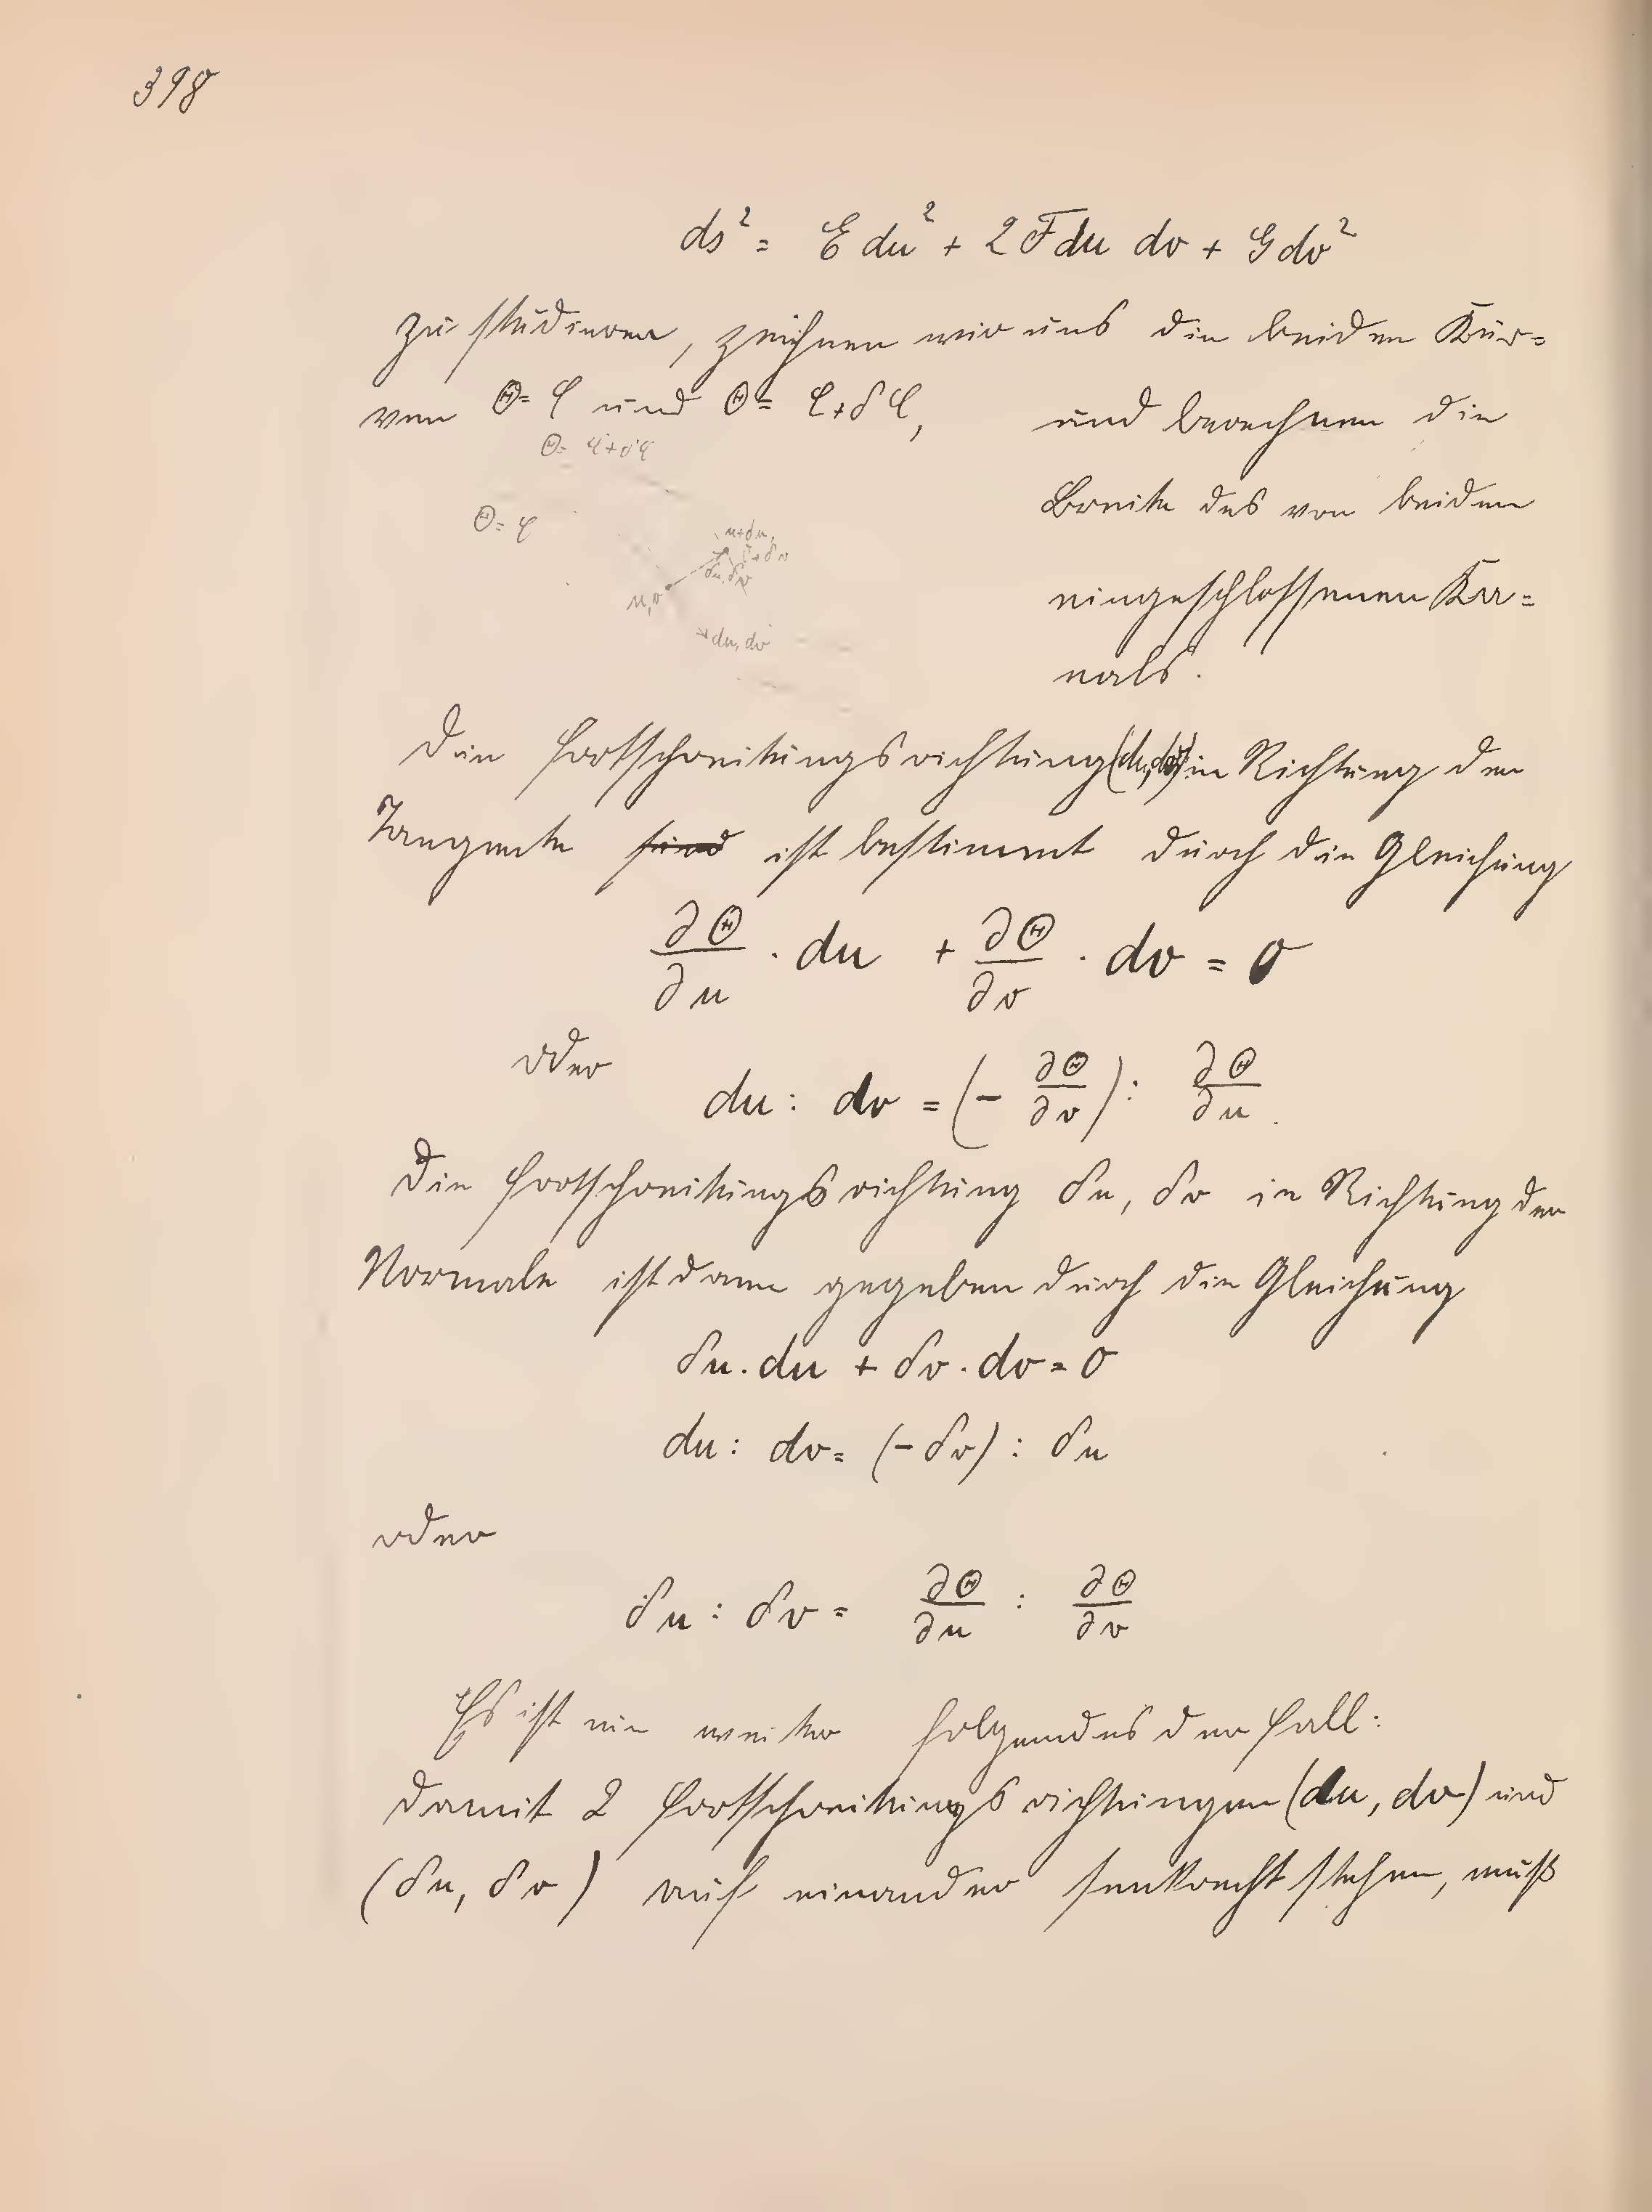 398
ds² = E du² + 2 F du dv + G dv²
zu studieren, zeichnen wir uns die beiden Kur=
ven Θ = φ und Θ = φ + δφ, und berechnen die
Θ = φ + δφ
Breite des von beiden
Θ = φ
u+δu,
v+δv
δu, δv
u, v
eingeschlossenen Ka=
du, dv
nals.
Die Fortschreitungsrichtung (du, dv) in Richtung der
Tangente sind ist bestimmt durch die Gleichung
∂Θ/∂u · du + ∂Θ/∂v · dv = 0
oder
du : dv = (− ∂Θ/∂v) : ∂Θ/∂u.
Die Fortschreitungsrichtung δu, δv in Richtung der
Normale ist dann gegeben durch die Gleichung
δu · du + δv · dv = 0
du : dv = (− δv) : δu
oder
δu : δv = ∂Θ/∂u : ∂Θ/∂v
Es ist nun weiter folgendes der Fall:
damit 2 Fortschreitungsrichtungen (du, dv) und
(δu, δv) auf einander senkrecht stehen, muß